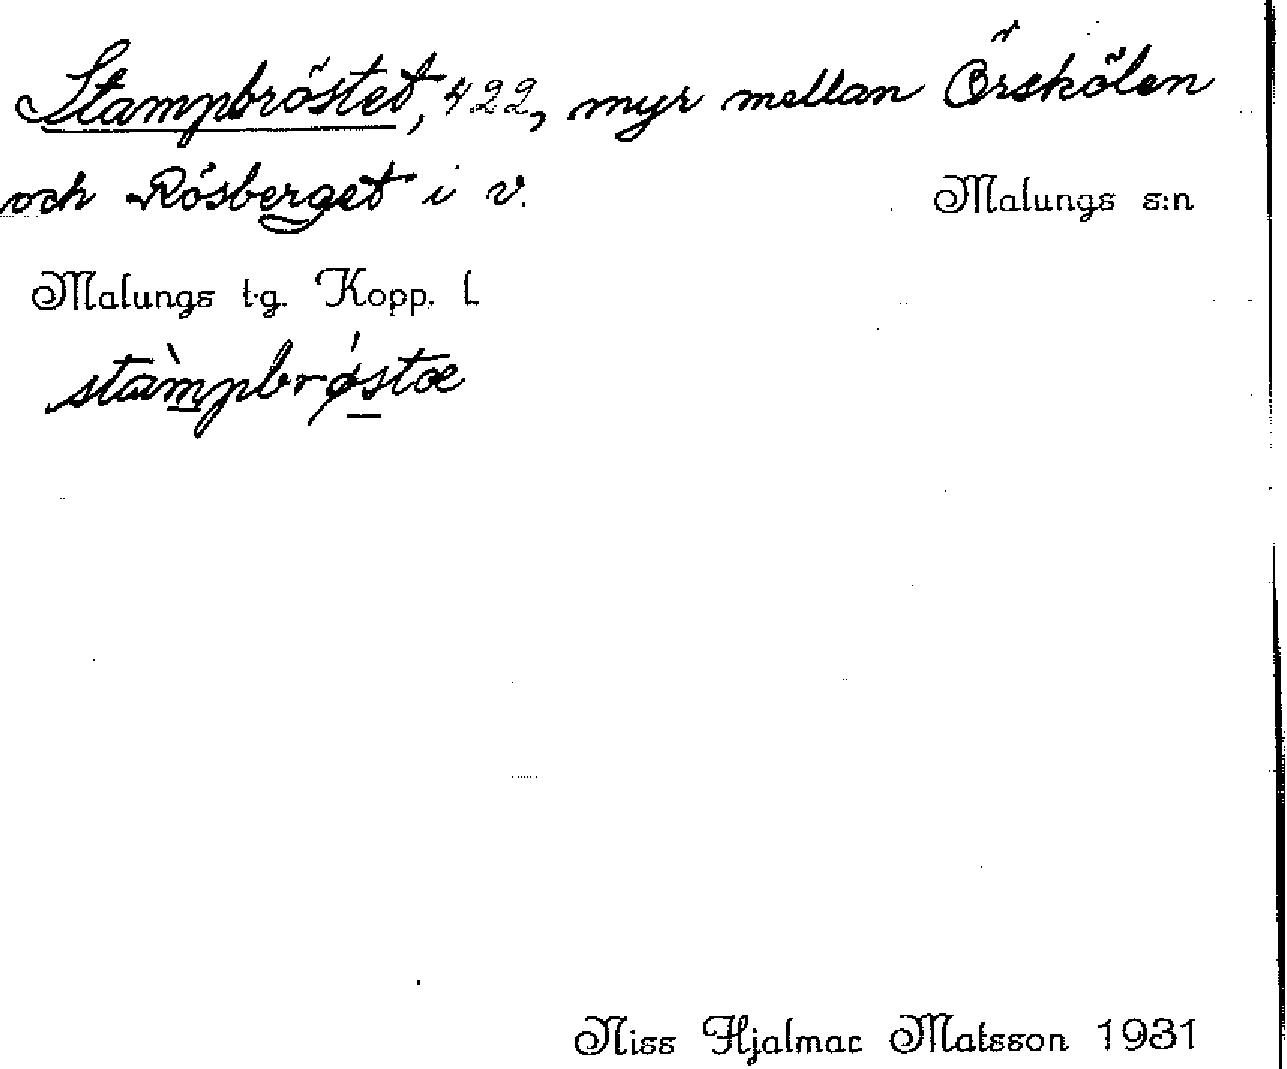 Stampbröstet, 422, myr mellan Örskölen
och Rösberget i v.
Malungs s:n
Malungs tg. Kopp. L
stàmpbrǿstæ
Niss Hjalmar Matsson 1931